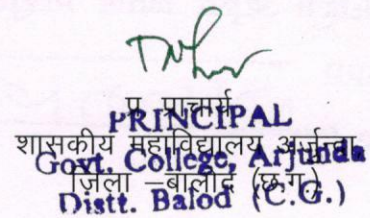 प्र. प्राचार्य
PRINCIPAL
शासकीय महाविद्यालय अर्जुन्दा
Govt. College, Arjunda
जिला –बालोद (छ.ग.)
Distt. Balod (C.G.)